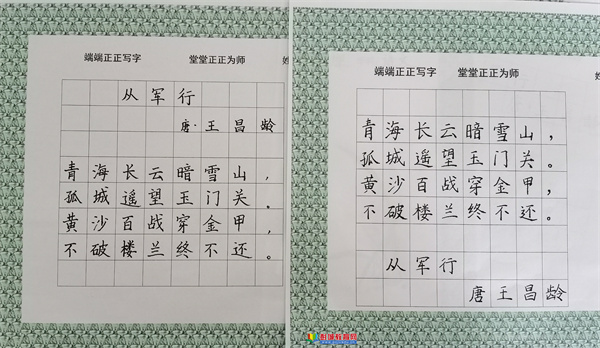 端端正正写字 堂堂正正为师
从军行
唐·王昌龄
青海长云暗雪山，
孤城遥望玉门关。
黄沙百战穿金甲，
不破楼兰终不还。
端端正正写字 堂堂正正为师
青海长云暗雪山，
孤城遥望玉门关。
黄沙百战穿金甲，
不破楼兰终不还。
从军行
唐王昌龄